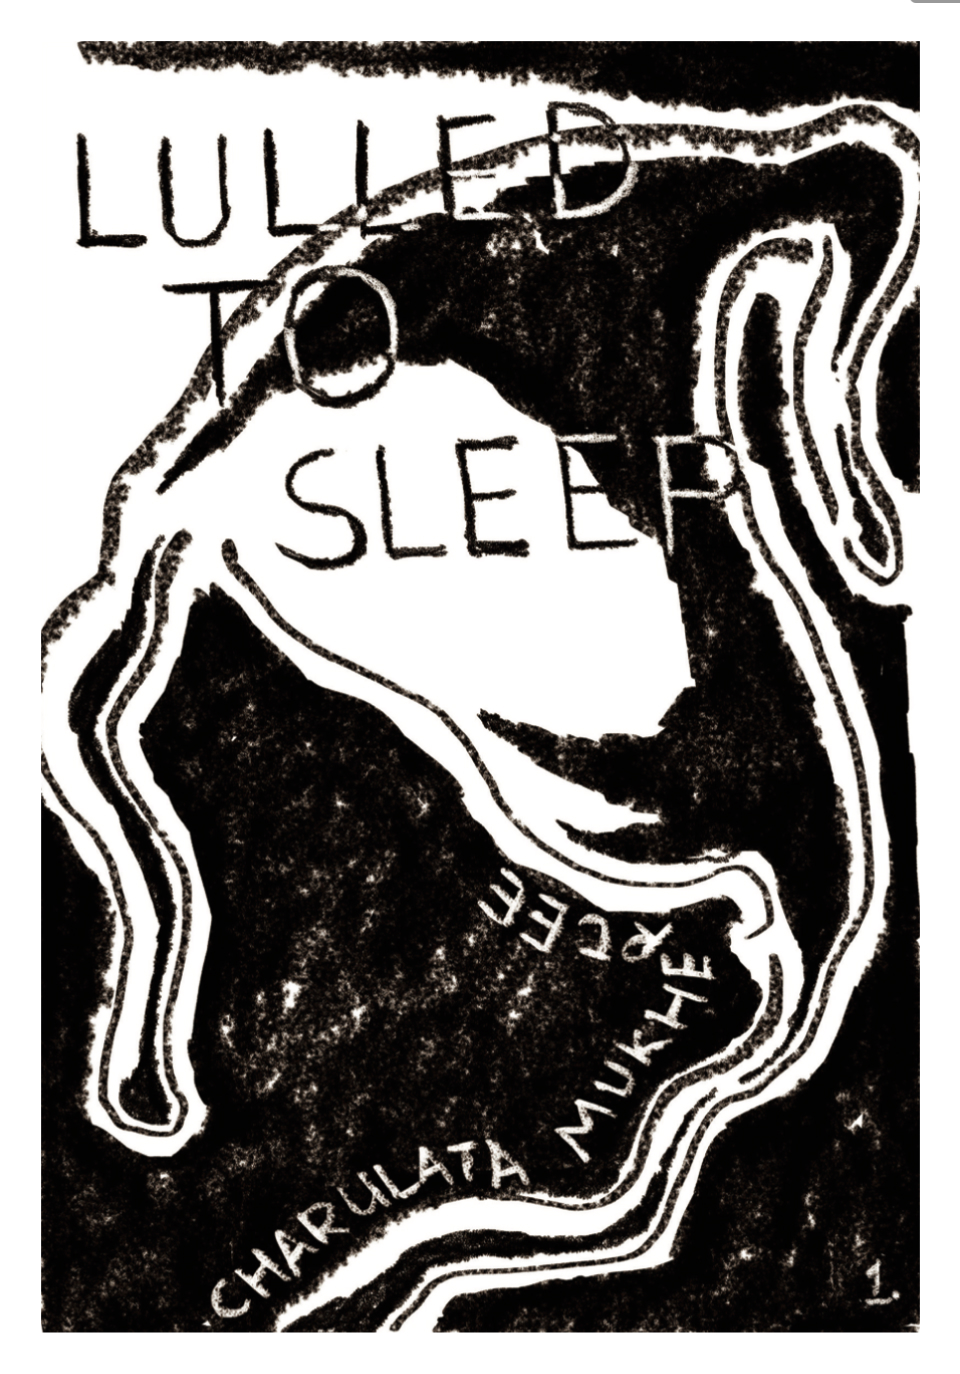 LULLED
TO
SLEEP
CHARULATA MUKHERCEE
1.